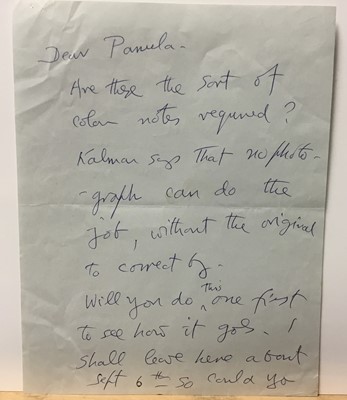 Dear Pamela -
Are these the sort of
colour notes required?
Kalman says that no photo-
-graph can do the
job, without the original
to correct by.
Will you do this one first
to see how it goes. I
shall leave here about
Sept 6th so could yo